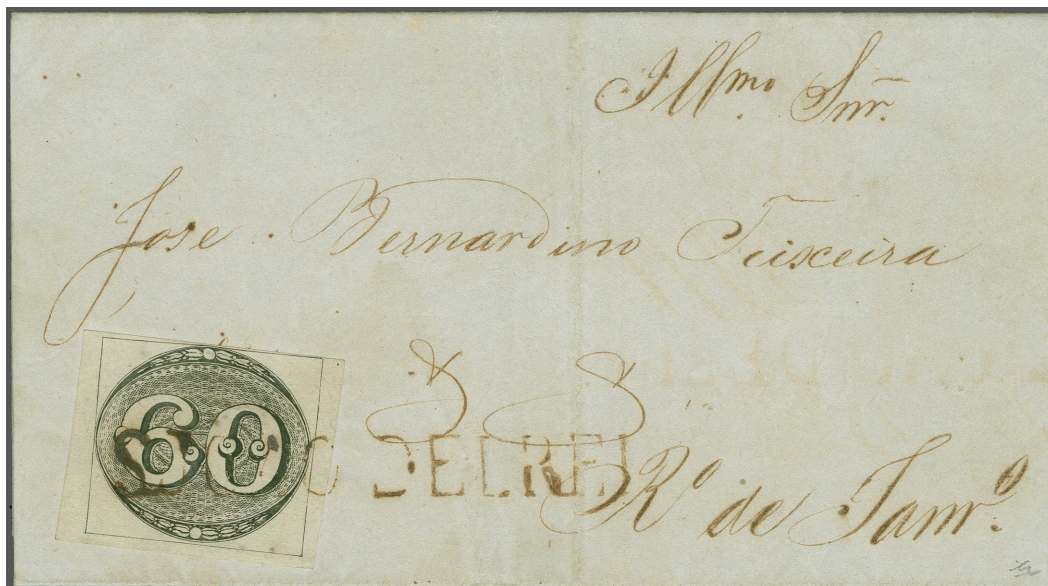 Illmo. Snr.
Jose Bernardino Teixeira
60
DELREI
Ro de Janro.